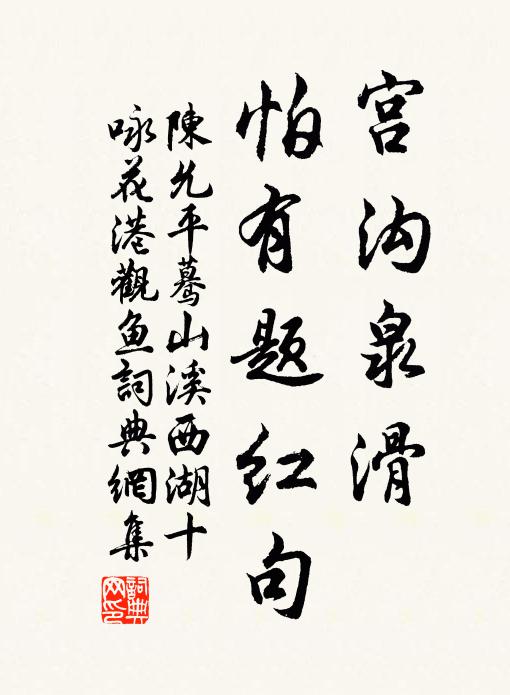 宫沟泉滑
怕有题红句
陳允平驀山溪西湖十
咏花港觀魚詞典網集
詞典网印